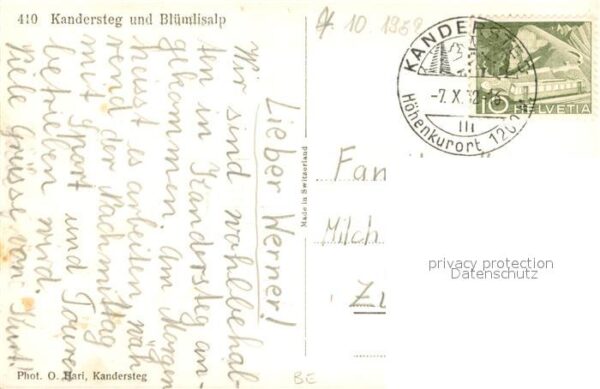 410 Kandersteg und Blümlisalp
Lieber Werner!
Wir sind wohlbehal-
ten in Kandersteg an-
gekommen. Am Morgen
heisst es arbeiten wäh
rend der Nachmittag
mit Sport und Touren
betrieben wird.
Viele Grüsse von: Kurt!
Phot. O. Hari, Kandersteg
Made in Switzerland
7. 10. 1952
KANDERSTEG
-7. X. 52
Höhenkurort 1200
10 HELVETIA
Fam
Milch
privacy protection
Datenschutz
BE